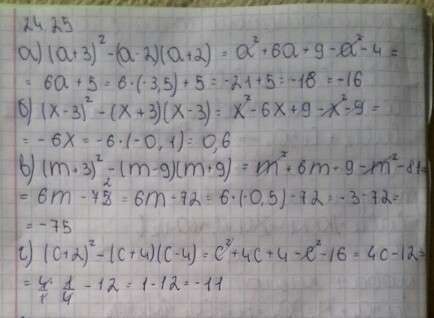 24.25
а) (a+3)² -(a-2)(a+2) = a² + 6a + 9 - a² - 4 =
= 6a + 5 = 6·(-3,5) + 5 = -21+5 = -18 = -16
б) (x-3)² - (x+3)(x-3) = x² - 6x + 9 - x² - 9 =
= -6x = -6·(-0,1) = 0,6
в) (m+3)² - (m-9)(m+9) = m² + 6m - 9 - m² - 81 =
= 6m - 72 = 6m - 72 = 6·(-0,5) - 72 = -3 - 72 =
= -75
г) (c+2)² - (c+4)(c-4) = c² + 4c + 4 - c² - 16 = 4c - 12 =
= 4/1 · 1/4 - 12 = 1 - 12 = -11